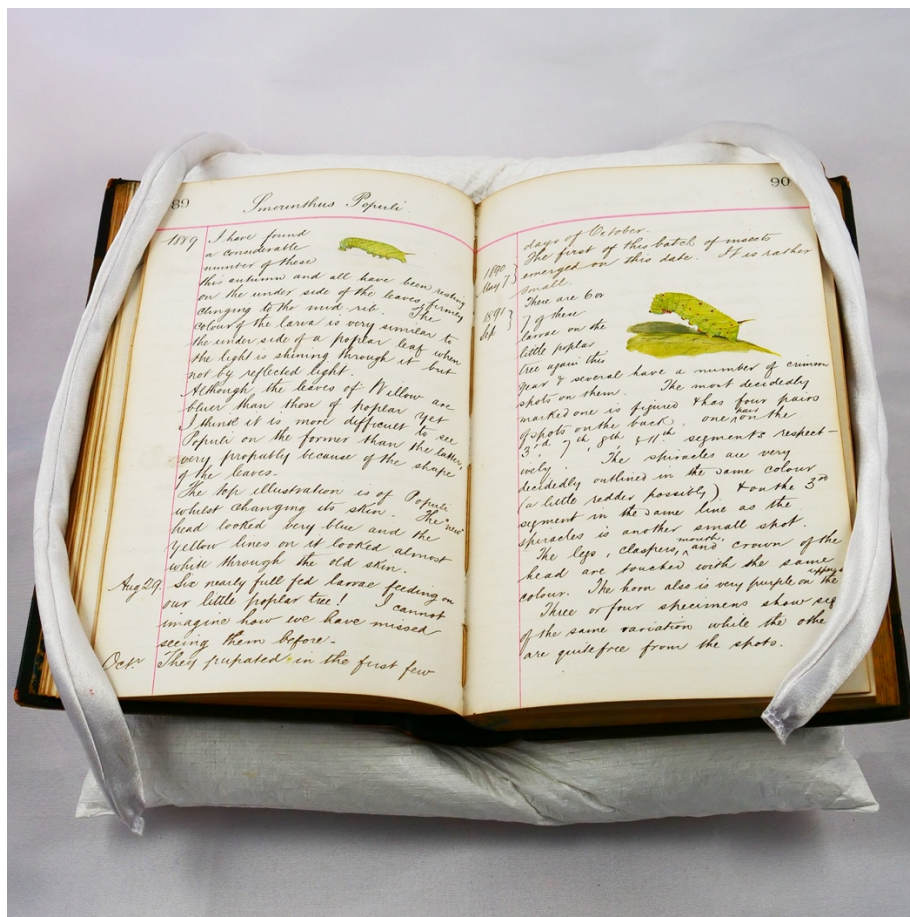 89
Smerinthus Populi
1889
I have found
a considerable
number of these
this autumn and all have been resting
on the under side of the leaves, firmly
clinging to the mid-rib. The
colour of the larva is very similar to
the under side of a poplar leaf when
the light is shining through it but
not by reflected light.
Although the leaves of Willow are
bluer than those of poplar yet
I think it is more difficult to see
Populi on the former than the latter,
very probably because of the shape
of the leaves.
The top illustration is of Populi
whilst changing its skin. The "new"
head looked very blue and the
yellow lines on it looked almost
white through the old skin.
Aug 29. Six nearly full fed larvae feeding on
our little poplar tree! I cannot
imagine how we have missed
seeing them before.
Octr. They pupated in the first few
90
days of October.
1890 May 7 } The first of this batch of insects
emerged on this date. It is rather
small.
1891 Sep } There are 6 or
7 of these
larvae on the
little poplar
tree again this
year & several have a number of crimson
spots on them. The most decidedly
marked one is figured & has four pairs
of spots on the back, one pair on the
3rd, 7th, 8th & 11th segments respect-
ively. The spiracles are very
decidedly outlined in the same colour
(a little redder possibly) & on the 3rd
segment in the same line as the
spiracles is another small spot.
The legs, claspers, mouth, and crown of the
head are touched with the same
colour. The horn also is very purple on the
Three or four specimens show
of the same variation while the
are quite free from the spots.